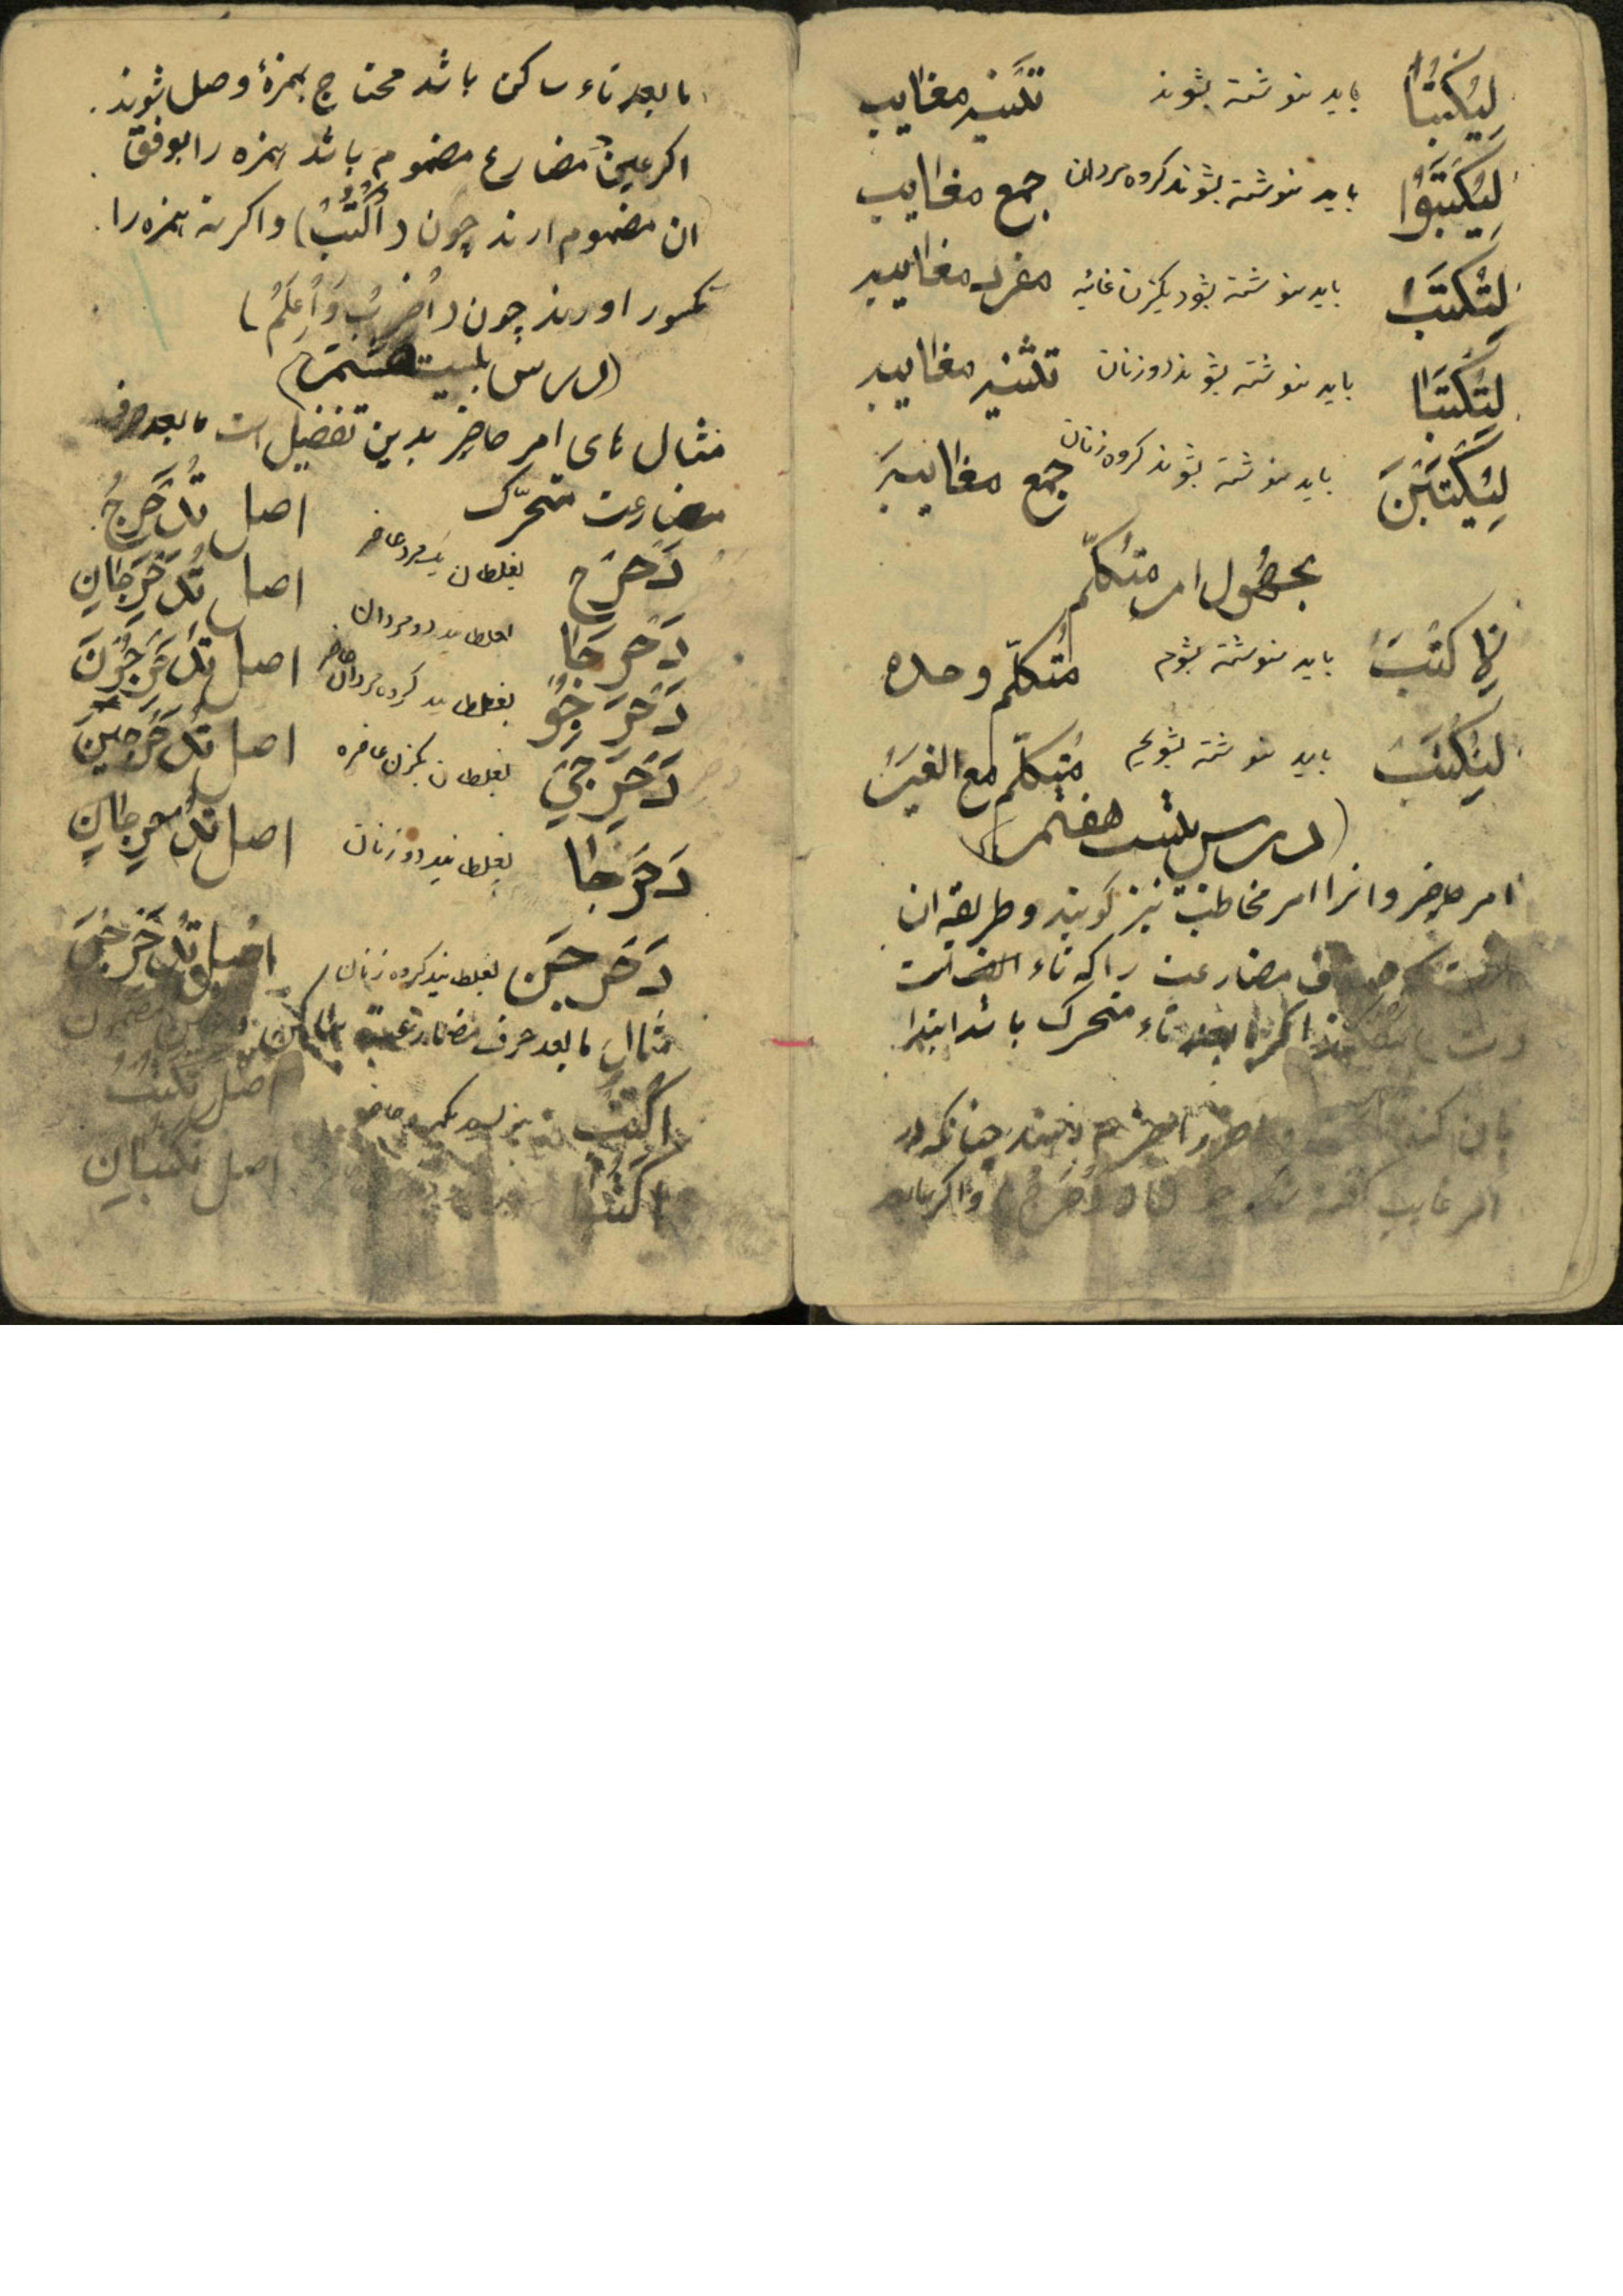 لِيُكْتَبا باید نوشته بشوند تثنیه مغایب
لِيُكْتَبُوا باید نوشته بشوند کروه مردان جمع مغایب
لِتُكْتَبَ باید نوشته بشود یکزن غائبه مفرد مغایبه
لِتُكْتَبَا باید نوشته بشوند دو زنان تثنیه مغایبه
لِيُكْتَبْنَ باید نوشته بشوند کروه زنان جمع مغایبه
مجهول امر متکلّم
لِاُكْتَبَ باید نوشته بشوم مُتکلّم وحده
لِنُكْتَبَ باید نوشته بشویم مُتکلّم مع الغیر
(درس بیست هفتم)
امر حاضر و انرا امر مخاطب نیز کویند و طریقه ان
مضارعت را که تاء است
اکر ما بعد تاء متحرک باشد ابتدا
بان کنند چنانکه در
امر غایب (دَحْرِجْ) و اکر ما بعد
ما بعد تاء ساکن باشد محتاج بهمزهٔ وصل شوند.
اکر عین مضارع مضموم باشد همزه را بوفق
ان مضموم ارند چون (اُكْتُبْ) و اکر نه همزه را
مکسور اورند چون (اِضْرِبْ وَاِعْلَمْ)
(درس بیست هشتم)
مثال های امر حاضر بدین تفضیل است ما بعد حرف
مضارعت متحرّک
دَحْرِجْ بغلطان یکمرد حاضر اصل تُدَحْرِجُ
دَحْرِجَا بغلطانید دو مردان اصل تُدَحْرِجَانِ
دَحْرِجُو بغلطانید کروه مردان حاضر اصل تُدَحْرِجُوْنَ
دَحْرِجِيْ بغلطان یکزن حاضره اصل تُدَحْرِجِيْنَ
دَحْرِجَا بغلطانید دو زنان اصل تُدَحْرِجَانِ
دَحْرِجْنَ بغلطانید کروه زنان اصل تُدَحْرِجْنَ
مثال ما بعد حرف مضارعت ساکن مضمون
اُكْتُبْ بنویسد یکمرد حاضر اصل تَكْتُبُ
اُكْتُبَا اصل تَكْتُبَانِ